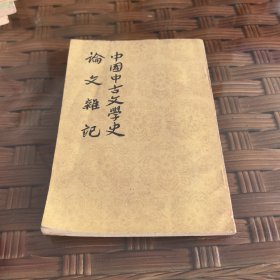 中国中古文學史
論文雜記